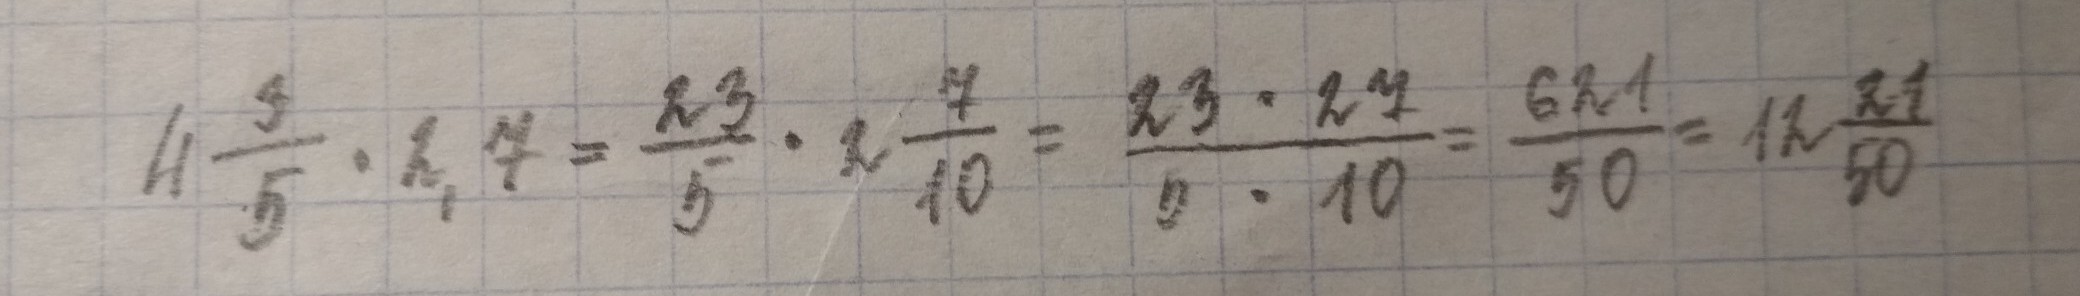 4 3/5 · 2,7 = 23/5 · 2 7/10 = 23 · 27 / 5 · 10 = 621/50 = 12 21/50